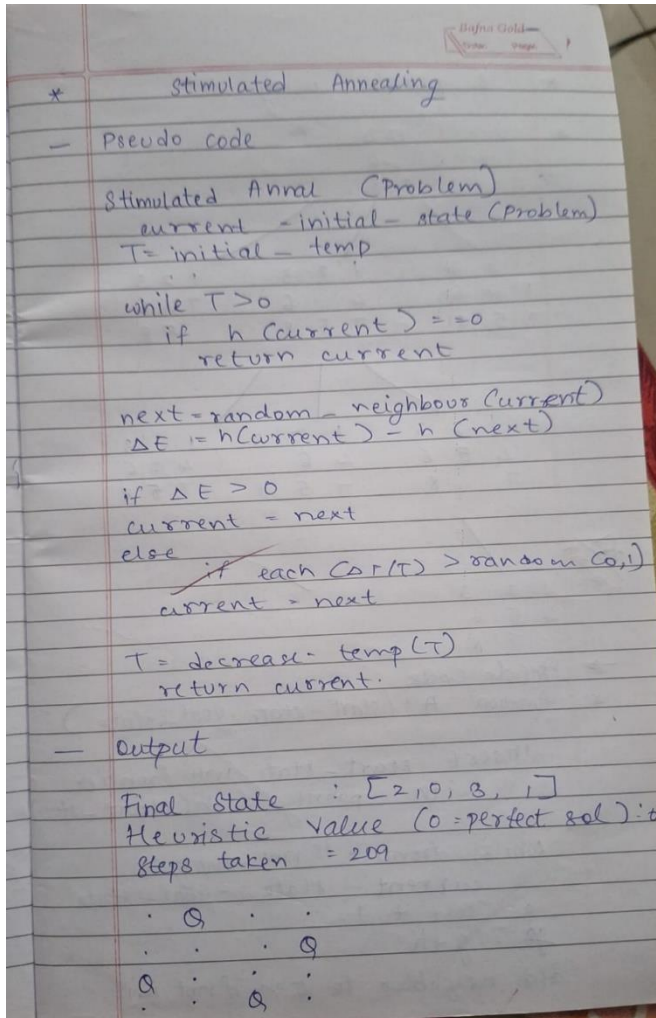 Bafna Gold
* Stimulated Annealing
— Pseudo code
Stimulated Annal (Problem)
current - initial - state (Problem)
T= initial - temp
while T>0
if h (current) = =0
return current
next = random - neighbour (urrent)
ΔE = h(current) - h (next)
if ΔE > 0
current = next
else
if each (Δ r/T) > random (0,1)
current = next
T = decrease - temp (T)
return current.
— Output
Final State : [2, 0, 3, 1]
Heuristic value (0 = perfect sol) :
Steps taken = 209
. Q . .
. . . Q
Q . . .
. . Q .